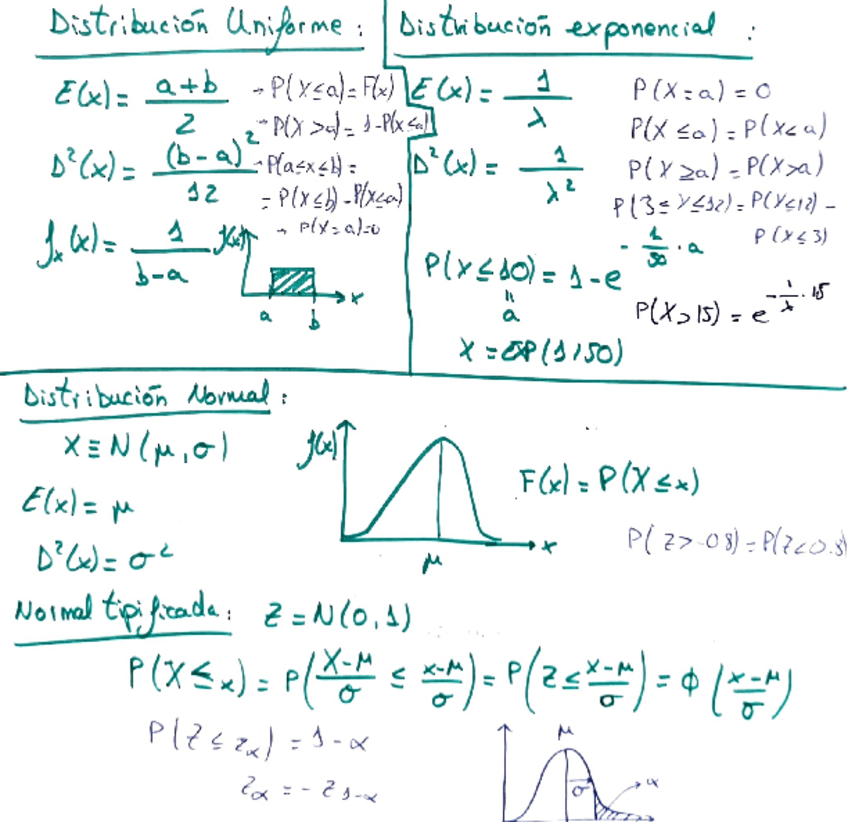 Distribución Uniforme:
E(x) = (a+b)/2
→ P(X≤a) = F(x)
→ P(X>a) = 1-P(x≤a)
D²(x) = (b-a)²/12
→ P(a≤x≤b) =
= P(X≤b) - P(X≤a)
→ P(X=a)=0
fx(x) = 1/(b-a)
f(x)
x
a b
Distribución exponencial:
E(x) = 1/λ
P(X=a) = 0
P(X≤a) = P(X<a)
D²(x) = 1/λ²
P(X≥a) = P(X>a)
P(3≤X≤12) = P(X≤12) -
P(X≤3)
P(X≤10) = 1-e^(-1/50·a)
"
a
P(X>15) = e^(-1/λ·15)
X = EXP(1/50)
Distribución Normal:
X ≡ N(μ,σ)
f(x)
x
μ
F(x) = P(X≤x)
E(x) = μ
P(Z>-0.8) = P(Z<0.8)
D²(x) = σ²
Normal tipificada: Z = N(0,1)
P(X≤x) = P((X-μ)/σ ≤ (x-μ)/σ) = P(Z≤(x-μ)/σ) = Φ((x-μ)/σ)
P(Z≤zα) = 1-α
zα = -z1-α
μ
σ
α